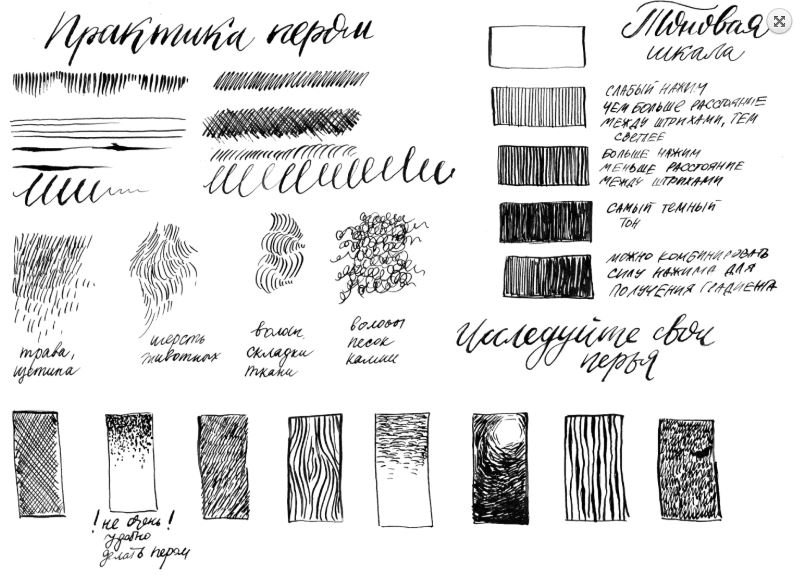 Практика пером
Тоновая
шкала
СЛАБЫЙ НАЖИМ
ЧЕМ БОЛЬШЕ РАССТОЯНИЕ
МЕЖДУ ШТРИХАМИ, ТЕМ
СВЕТЛЕЕ
БОЛЬШЕ НАЖИМ
МЕНЬШЕ РАССТОЯНИЕ
МЕЖДУ ШТРИХАМИ
САМЫЙ ТЕМНЫЙ
ТОН
МОЖНО КОМБИНИРОВАТЬ
СИЛУ НАЖИМА ДЛЯ
ПОЛУЧЕНИЯ ГРАДИЕНТА
трава,
щетина
шерсть
животных
волосы,
складки
ткани
волосы
песок
камни
Исследуйте свои
перья
! не очень !
удобно
делать пером